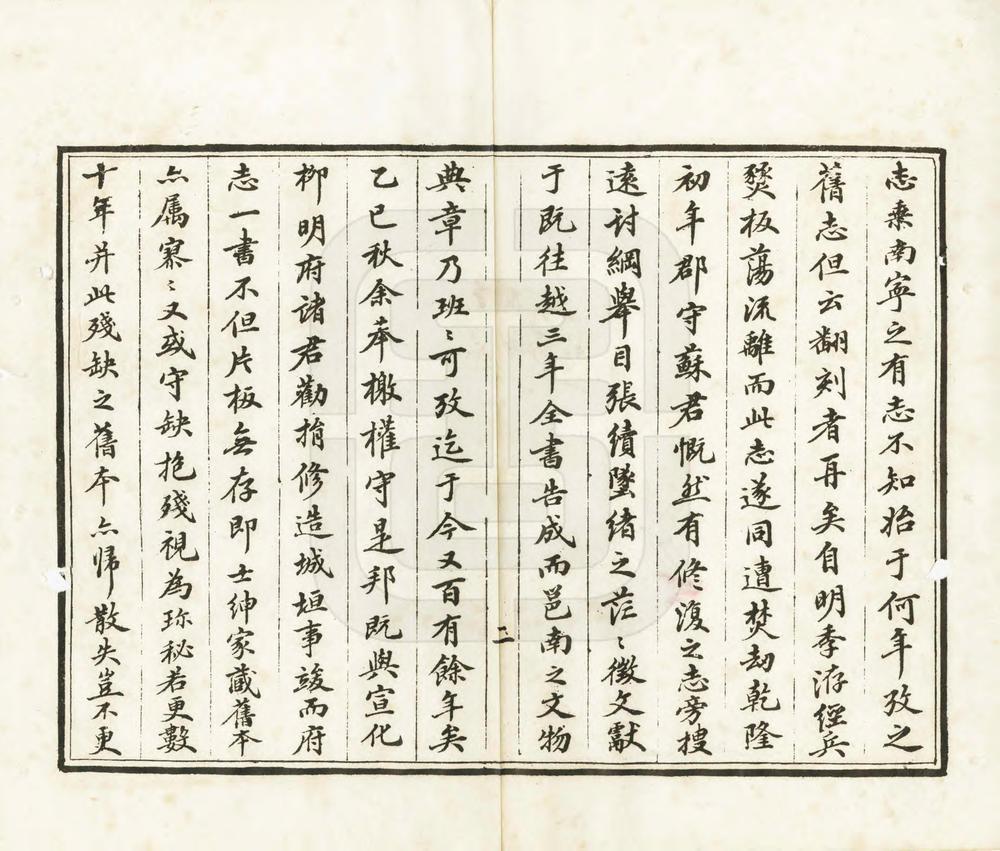 志乗南寧之有志不知始于何年攷之
舊志但云翻刻者再矣自明季洊經兵
燹板蕩流離而此志遂同遭焚劫乾隆
初年郡守蘇君慨然有修復之志旁搜
遠討綱舉目張續墜緒之茫〻徵文獻
于既往越三年全書告成而邕南之文物
二
典章乃班〻可攷迄于今又百有餘年矣
乙巳秋余奉檄權守是邦既與宣化
柳明府諸君勸捐修造城垣事竣而府
志一書不但片板無存即士紳家藏舊本
亦属寡〻又或守缺抱殘視為珎秘若更數
十年并此殘缺之舊本亦歸散失豈不更